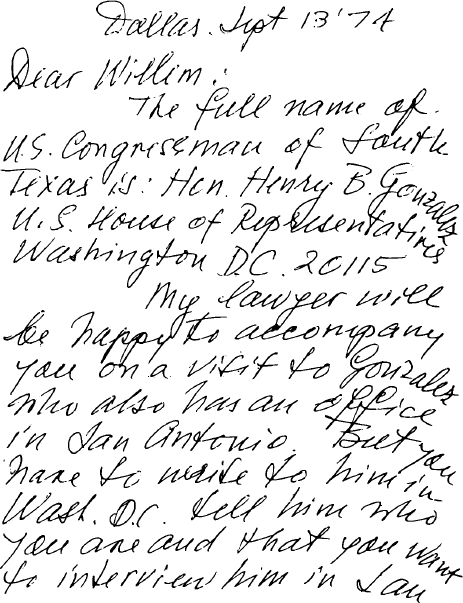 Dallas. Sept 13'74
Dear Willem:
The full name of
U.S. Congressman of South
Texas is: Hon. Henry B. Gonzalez
U.S. House of Representatives
Washington D.C. 20115
My lawyer will
be happy to accompany
you on a visit to Gonzalez
who also has an office
in San Antonio. But you
have to write to him in
Wash. D.C. tell him who
you are and that you want
to interview him in San